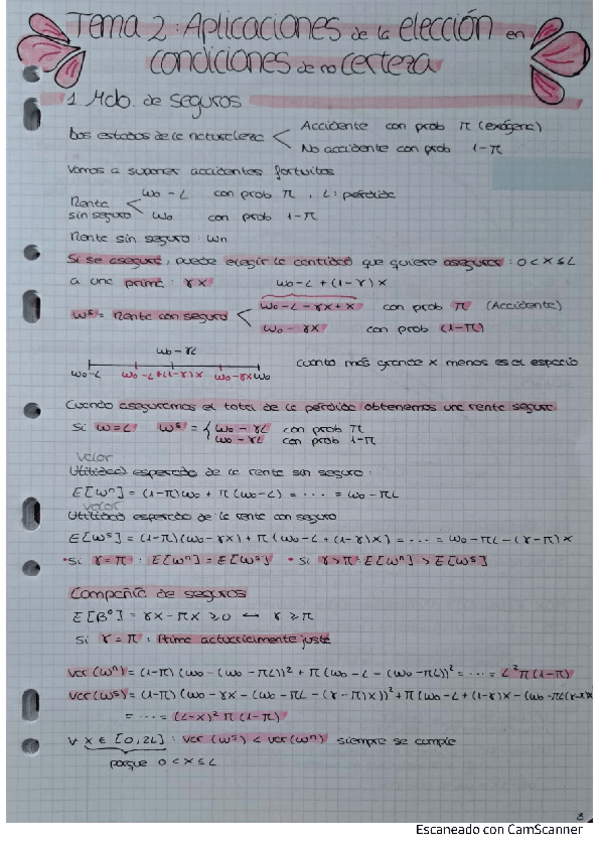 Tema 2: Aplicaciones de la elección en
condiciones de no certeza
1. Mdo. de seguros
Dos estados de la naturaleza < Accidente con prob π (exógena)
No accidente con prob 1-π
Vamos a suponer accidentes fortuitos
Renta sin seguro < ω₀-L con prob π , L: pérdida
ω₀ con prob 1-π
Renta sin seguro: ωn
Si se asegura, puede elegir la cantidad que quiere asegurar: 0<x≤L
a una prima: γx ω₀-L+(1-γ)x
ωˢ = Renta con seguro < ω₀-L-γx+x con prob π (Accidente)
ω₀-γx con prob (1-π)
ω₀-γL
ω₀-L ω₀-L+(1-γ)x ω₀-γx ω₀ cuanto más grande x menos es el espacio
Cuando aseguramos el total de la pérdida obtenemos una renta segura
Si ω=L ωˢ = { ω₀-γL con prob π
ω₀-γL con prob 1-π
Valor
Utilidad esperada de la renta sin seguro:
E[ωⁿ] = (1-π)ω₀ + π(ω₀-L) = ... = ω₀-πL
valor
Utilidad esperada de la renta con seguro
E[ωˢ] = (1-π)(ω₀-γx) + π(ω₀-L+(1-γ)x) = ... = ω₀-πL-(γ-π)x
• Si γ=π : E[ωⁿ] = E[ωˢ] • Si γ>π : E[ωⁿ] > E[ωˢ]
Compañía de seguros
E[B⁰] = γx-πx ≥0 ↔ γ≥π
Si γ=π : Prima actuarialmente justa
var(ωⁿ) = (1-π)(ω₀-(ω₀-πL))² + π(ω₀-L-(ω₀-πL))² = ... = L²π(1-π)
var(ωˢ) = (1-π)(ω₀-γx-(ω₀-πL-(γ-π)x))² + π(ω₀-L+(1-γ)x-(ω₀-πL(γ-π)x
= ... = (L-x)²π(1-π)
∀ x ∈ [0,2L] : var(ωˢ) < var(ωⁿ) siempre se cumple
porque 0<x≤L
8
Escaneado con CamScanner